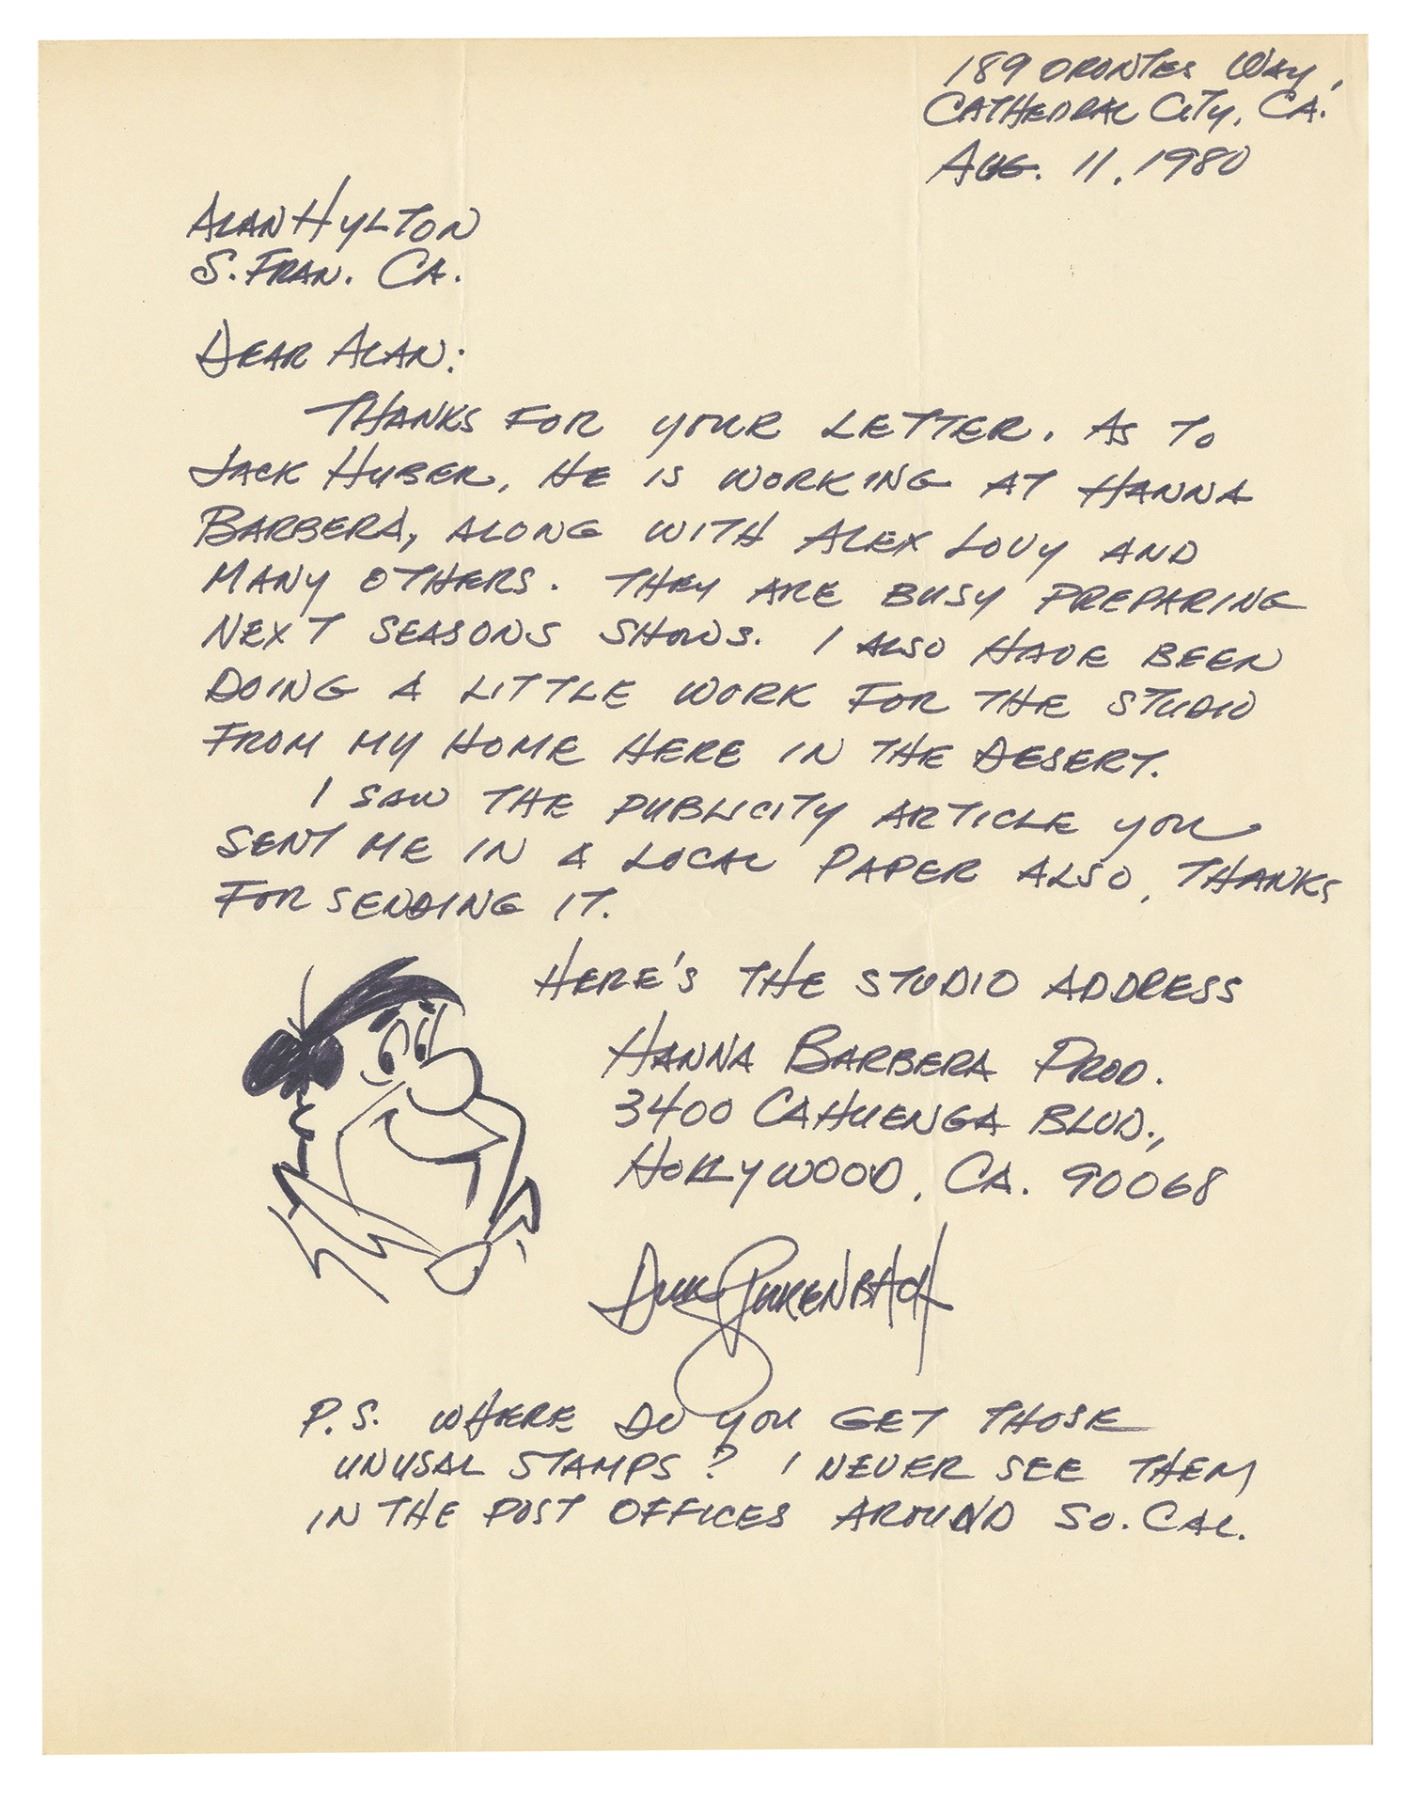 189 ORONTES WAY,
CATHEDRAL CITY, CA.
AUG. 11, 1980
ALAN HYLTON
S. FRAN. CA.
DEAR ALAN:
THANKS FOR YOUR LETTER. AS TO
JACK HUBER, HE IS WORKING AT HANNA
BARBERA, ALONG WITH ALEX LOVY AND
MANY OTHERS. THEY ARE BUSY PREPARING
NEXT SEASONS SHOWS. I ALSO HAVE BEEN
DOING A LITTLE WORK FOR THE STUDIO
FROM MY HOME HERE IN THE DESERT.
I SAW THE PUBLICITY ARTICLE YOU
SENT ME IN A LOCAL PAPER ALSO, THANKS
FOR SENDING IT.
HERE'S THE STUDIO ADDRESS
HANNA BARBERA PROD.
3400 CAHUENGA BLVD.,
HOLLYWOOD, CA. 90068
DICK BICKENBACH
P.S. WHERE DO YOU GET THOSE
UNUSAL STAMPS? I NEVER SEE THEM
IN THE POST OFFICES AROUND SO. CAL.